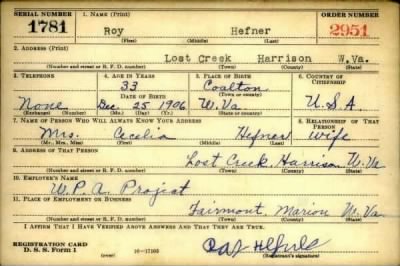 SERIAL NUMBER 1. NAME (Print) ORDER NUMBER
1781 Roy Hefner 2951
(First) (Middle) (Last)
2. ADDRESS (Print)
Lost Creek Harrison W.Va.
(Number and street or R. F. D. number) (Town) (County) (State)
3. TELEPHONE 4. AGE IN YEARS 5. PLACE OF BIRTH 6. COUNTRY OF CITIZENSHIP
33 Coalton
DATE OF BIRTH (Town or county)
None Dec. 25 1906 W. Va U.S.A
(Exchange) (Number) (Mo.) (Day) (Yr.) (State or country)
7. NAME OF PERSON WHO WILL ALWAYS KNOW YOUR ADDRESS 8. RELATIONSHIP OF THAT PERSON
Mrs. Cecelia Hefner wife
(Mr., Mrs., Miss) (First) (Middle) (Last)
9. ADDRESS OF THAT PERSON
Lost Creek, Harrison W. Va
(Number and street or R. F. D. number) (Town) (County) (State)
10. EMPLOYER'S NAME
W.P.A. Project
11. PLACE OF EMPLOYMENT OR BUSINESS
Fairmont, Marion W. Va.
(Number and street or R. F. D. number) (Town) (County) (State)
I AFFIRM THAT I HAVE VERIFIED ABOVE ANSWERS AND THAT THEY ARE TRUE.
REGISTRATION CARD
D. S. S. Form 1 16—17105 (Registrant's signature)